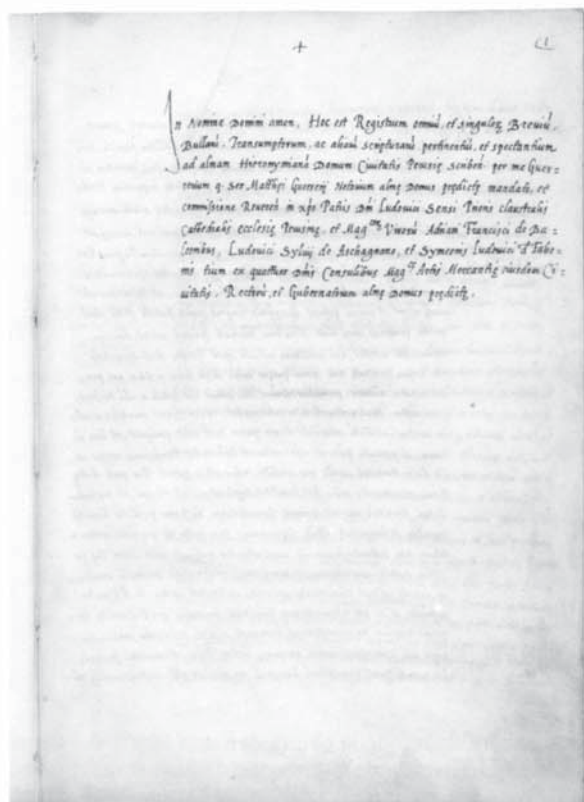 +
In Nomine Domini amen. Hoc est Registrum omniũ, et singulorꝫ Breviũ,
Bullarũ, Transumptorum, ac aliarũ scripturarũ pertinentiũ, et spectantium
ad almam Hieronymianã Domum Civitatis Perusię per me Guer=
rerium q. Ser Matthęi Guerrerij Notarium almę Domus prędictę mandato, et
commissione in xp̃o Patris Dñi Ludovici Sensi Prioris claustralis
Cathedralis ecclesię Perusinę, et Mag.^corum Virorũ Adriani Francisci de Ba=
Ludovici Sylvij de Aschagnano, et Symeonis Ludovici
trium ex quattuor Dñis Consulibus Mag.^cę Artis Mercantię eiusdem Ci=
vitatis. Rectorũ, et Gubernatorum almę Domus prędictę.